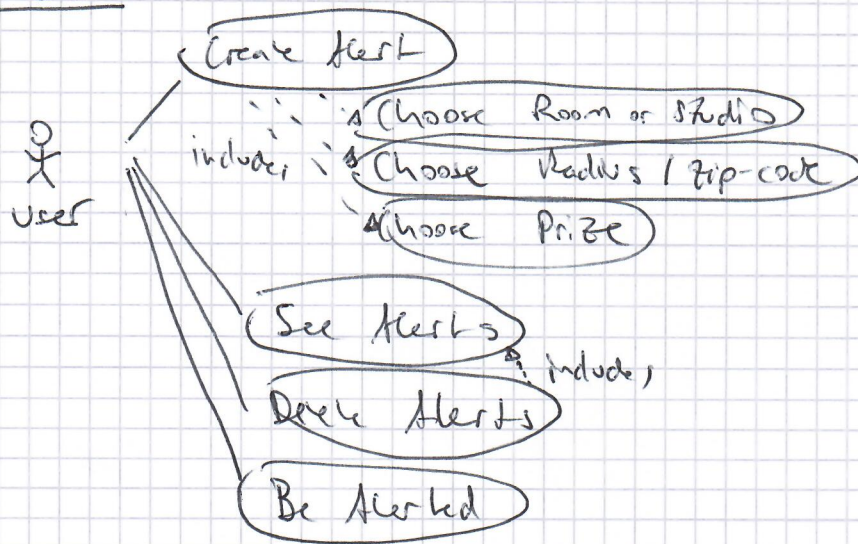 Create Alert
Choose Room or Studio
includes
Choose Radius / Zip-code
user
Choose Prize
See Alerts
includes
Delete Alerts
Be Alerted